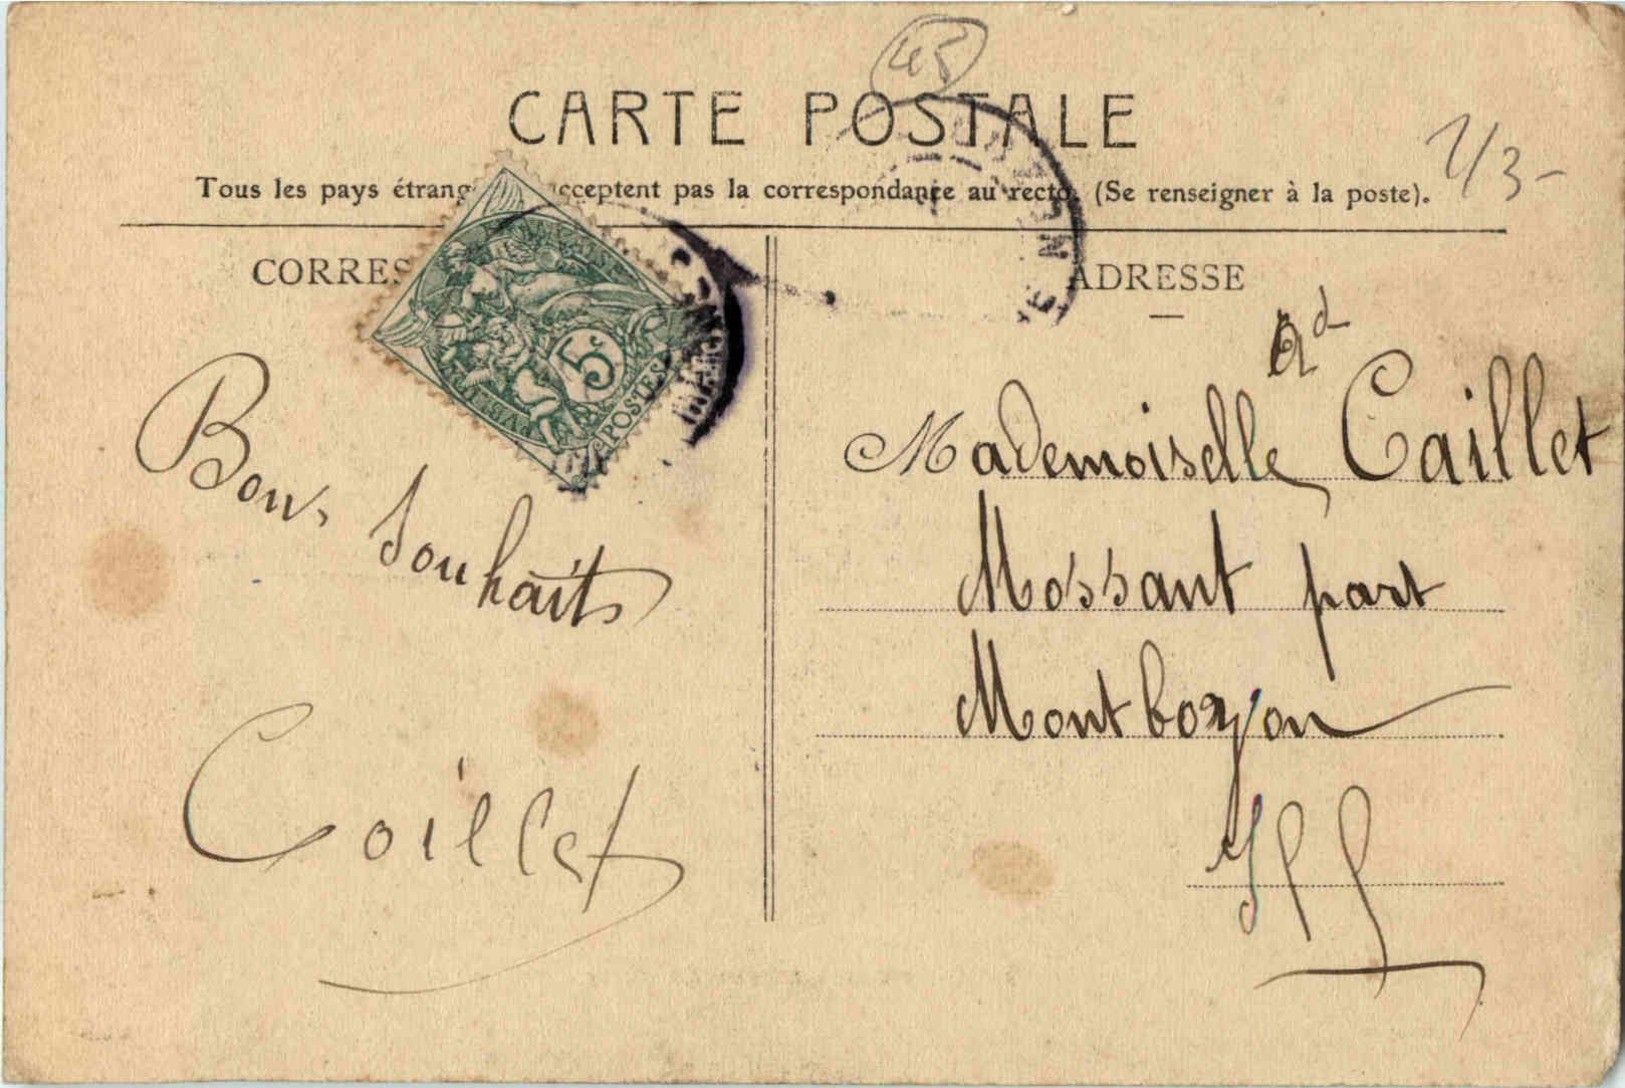 45
CARTE POSTALE
1/3-
Tous les pays étrang cceptent pas la correspondance au recto. (Se renseigner à la poste).
CORRES
ADRESSE
5c
POSTES
Bons
Souhaits
Caillet
Mademoiselle Caillet
Mossant part
Montboyon